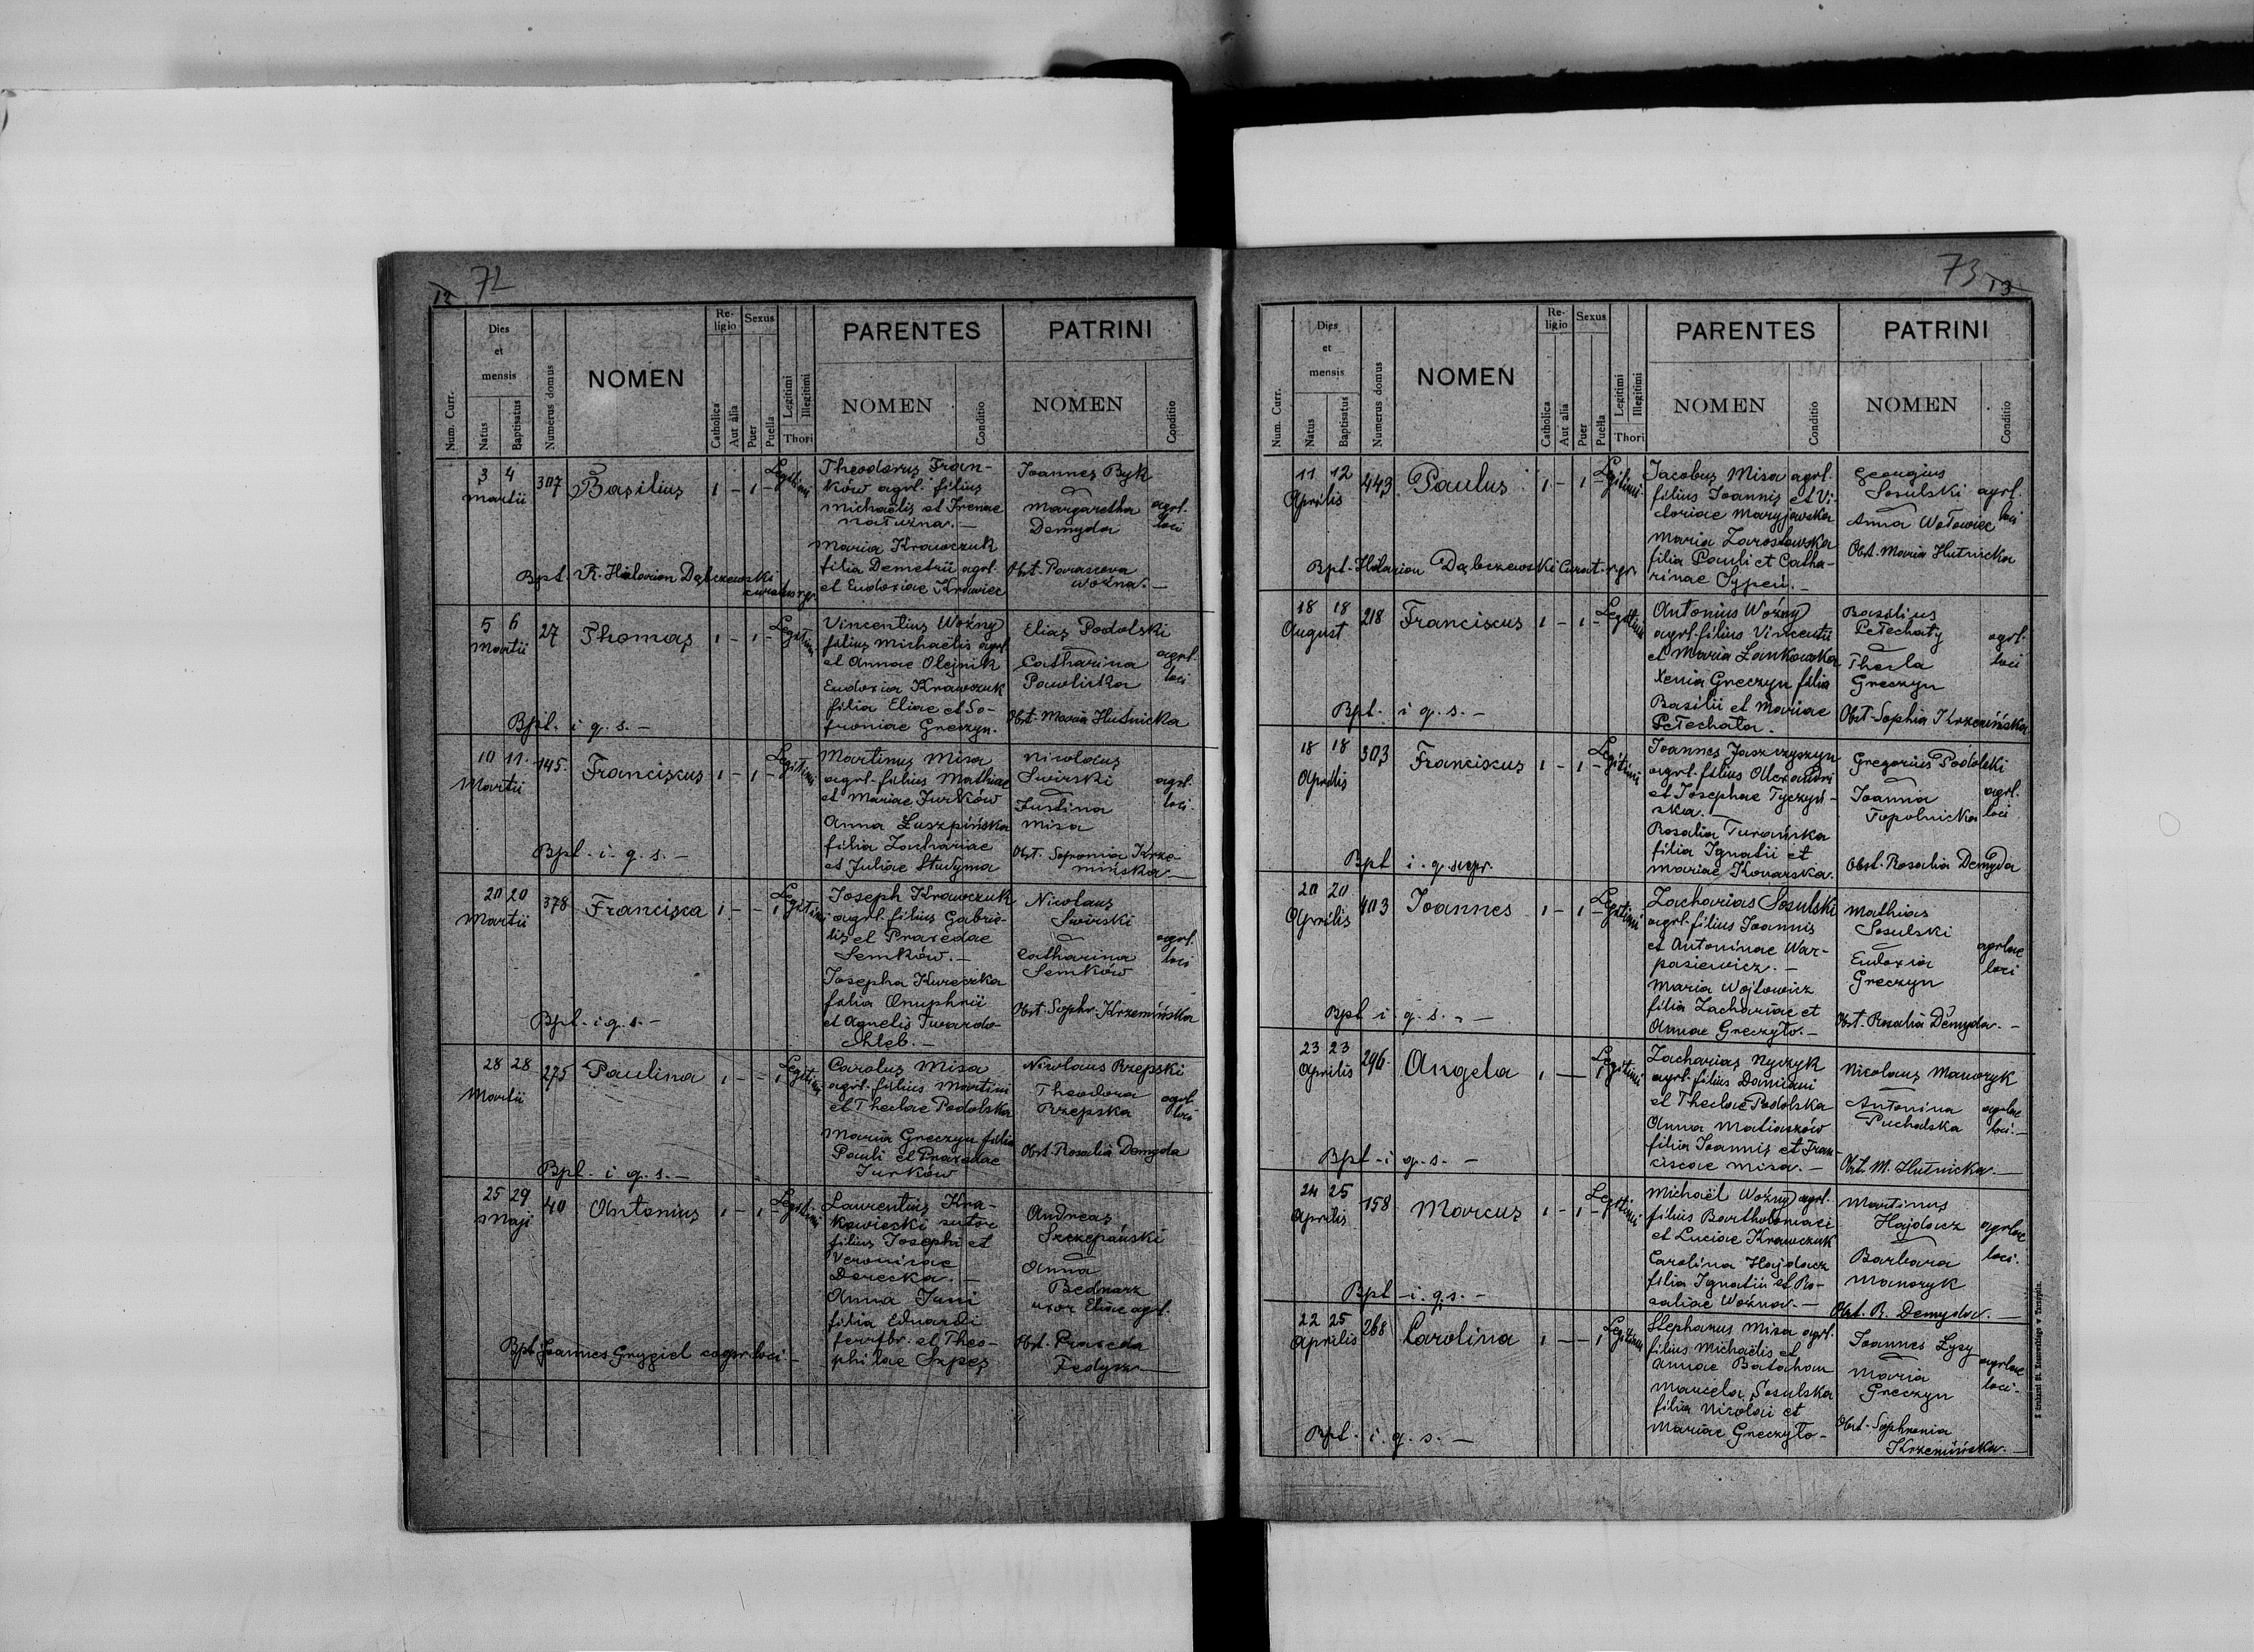 12 72
Num. Curr.
Dies et mensis
Natus
Baptisatus
Numerus domus
NOMEN
Religio
Catholica
Aut alia
Sexus
Puer
Puella
Legitimi
Illegitimi
Thori
PARENTES
NOMEN
Conditio
PATRINI
NOMEN
Conditio
3 4
Martii
307
Basilius
1 - 1 -
Legitimi
Theodorus Fran-
ków agrl. filius
Michaëlis et Irenae
Maria Krawczuk
filia Demetrii agrl.
et Eudoxiae Krawiec
Joannes Byk
Margaretha
Demyda
agrl.
loci
Obst. Parasceva
Woźna. -
Bpt. Hilarion Dąbczewski
5 6
Martii
27
Thomas
1 - 1 -
Legitimi
Vincentius Woźny
filius Michaëlis agrl.
et Annae Olejnik
Eudoxia Krawczuk
filia Eliae et So-
froniae Greczyn.
Elias Podolski
Catharina
Pawlicka
agrl.
loci
Obst. Maria Hutnicka
Bpt. i. q. s. -
10 11.
Martii
145.
Franciscus
1 - 1 -
Legitimi
Martinus Misa
agrl. filius Mathiae
et Mariae Jurków
Anna Łuszpińska
filia Zachariae
et Juliae Studyma
Nicolaus
Swirski
Justina
Misa
agrl.
loci.
Obst. Sofronia Krze-
mińska. -
Bpt. i. q. s. -
20 20
Martii
378
Francisca
1 - - 1
Legitimi
Joseph Krawczuk
agrl. filius Gabrie-
lis et Praxedae
Semków. -
Josepha Kureczka
filia Onuphrii
et Agnetis Twardo-
chleb. -
Nicolaus
Swirski
Catharina
Semków
agrl.
loci
Obst. Sophr. Krzemińska
Bpt. i. q. s. -
28 28
Martii
275
Paulina
1 - - 1
Legitimi
Carolus Misa
agrl. filius Martini
et Theclae Podolska
Maria Greczyn filia
Pauli et Praxedae
Jurków
Nicolaus Rzepski
Theodora
Rzepska
agrl.
loci
Obst. Rosalia Demyda
Bpt. i. q. s. -
25 29
Maji
40
Antonius
1 - 1 -
Legitimi
Laurentius Kra-
kowiecki sutor
filius Josephi et
Veronicae
Derecka. -
Anna Juni
filia Eduardi
et Theo-
philae Szpes
Andreas
Szczepański
Anna
Bednarz
uxor Eliae agrl.
Obst. Praxeda
Fedysz
Bpt. Joannes Grygiel loci -
73 13
Num. Curr.
Dies et mensis
Natus
Baptisatus
Numerus domus
NOMEN
Religio
Catholica
Aut alia
Sexus
Puer
Puella
Legitimi
Illegitimi
Thori
PARENTES
NOMEN
Conditio
PATRINI
NOMEN
Conditio
11 12
Aprilis
443
Paulus
1 - 1 -
Legitimi
Jacobus Misa agrl.
filius Joannis et Vi-
ctoriae Maryjowska
Maria Zarosławska
filia Pauli et Catha-
rinae Sypeń. -
Georgius
Sosulski
Anna Wołowiec
agrl.
loci
Obst. Maria Hutnicka
Bpt. Hilarion Dąbczewski Curat. rgr.
18 18
August
218
Franciscus
1 - 1 -
Legitimi
Antonius Woźny
agrl. filius Vincentii
et Maria Lankowska
Xenia Greczyn filia
Basilii et Mariae
Pełechata.
Basilius
Pełechaty
Thecla
Greczyn
agrl.
loci
Obst. Sophia Krzemińska
Bpt. i. q. s. -
18 18
Aprilis
303
Franciscus
1 - 1 -
Legitimi
Joannes Jaszczyszyn
agrl. filius Alexandri
et Josephae Tyczyń-
ska. -
Rosalia Turańska
filia Ignatii et
Mariae Konarska.
Gregorius Podolski
Joanna
Topolnicka
agrl.
loci
Obst. Rosalia Demyda
Bpt i. q. supr.
20 20
Aprilis
403
Joannes
1 - 1 -
Legitimi
Zacharias Sosulski
agrl. filius Joannis
et Antoninae War-
pasiewicz. -
Maria Wojtowicz
filia Zachariae et
Annae Greczyło. -
Mathias
Sosulski
Eudoxia
Greczyn
agrlae
loci
Obst. Rosalia Demyda. -
Bpt i. q. s. -
23 23
Aprilis
296.
Angela
1 - 1
Legitimi
Zacharias Nyczyk
agrl. filius Damiani
et Theclae Podolska
Anna Matiaszów
filia Joannis et Fran-
ciscae Misa. -
Nicolaus Manoryk
Antonina
Puchalska
agrlae
loci. -
Obst. M. Hutnicka. -
Bpt. i q. s. -
24 25
Aprilis
158
Marcus
1 - 1 -
Legitimi
Michaël Woźny agrl.
filius Bartholomaei
et Luciae Krawczuk
Carolina Hajdacz
filia Ignatii et Ro-
saliae Woźna. -
Martinus
Hajdacz
Barbara
Manoryk
agrlae
loci.
Obst. R. Demyda. -
Bpt - i. q. s. -
22 25
Aprilis
268
Carolina
1 - - 1
Legitimi
Stephanus Misa agrl.
filius Michaëlis et
Annae Batachan
Marcela Sosulska
filia Nicolai et
Mariae Greczyło -
Joannes Łysy
Maria
Greczyn
agrlae
loci.
Obst. Sophronia
Krzemińska. -
Bpt. i. q. s. -
Z drukarni St. Kossowskiego w Tarnopolu.